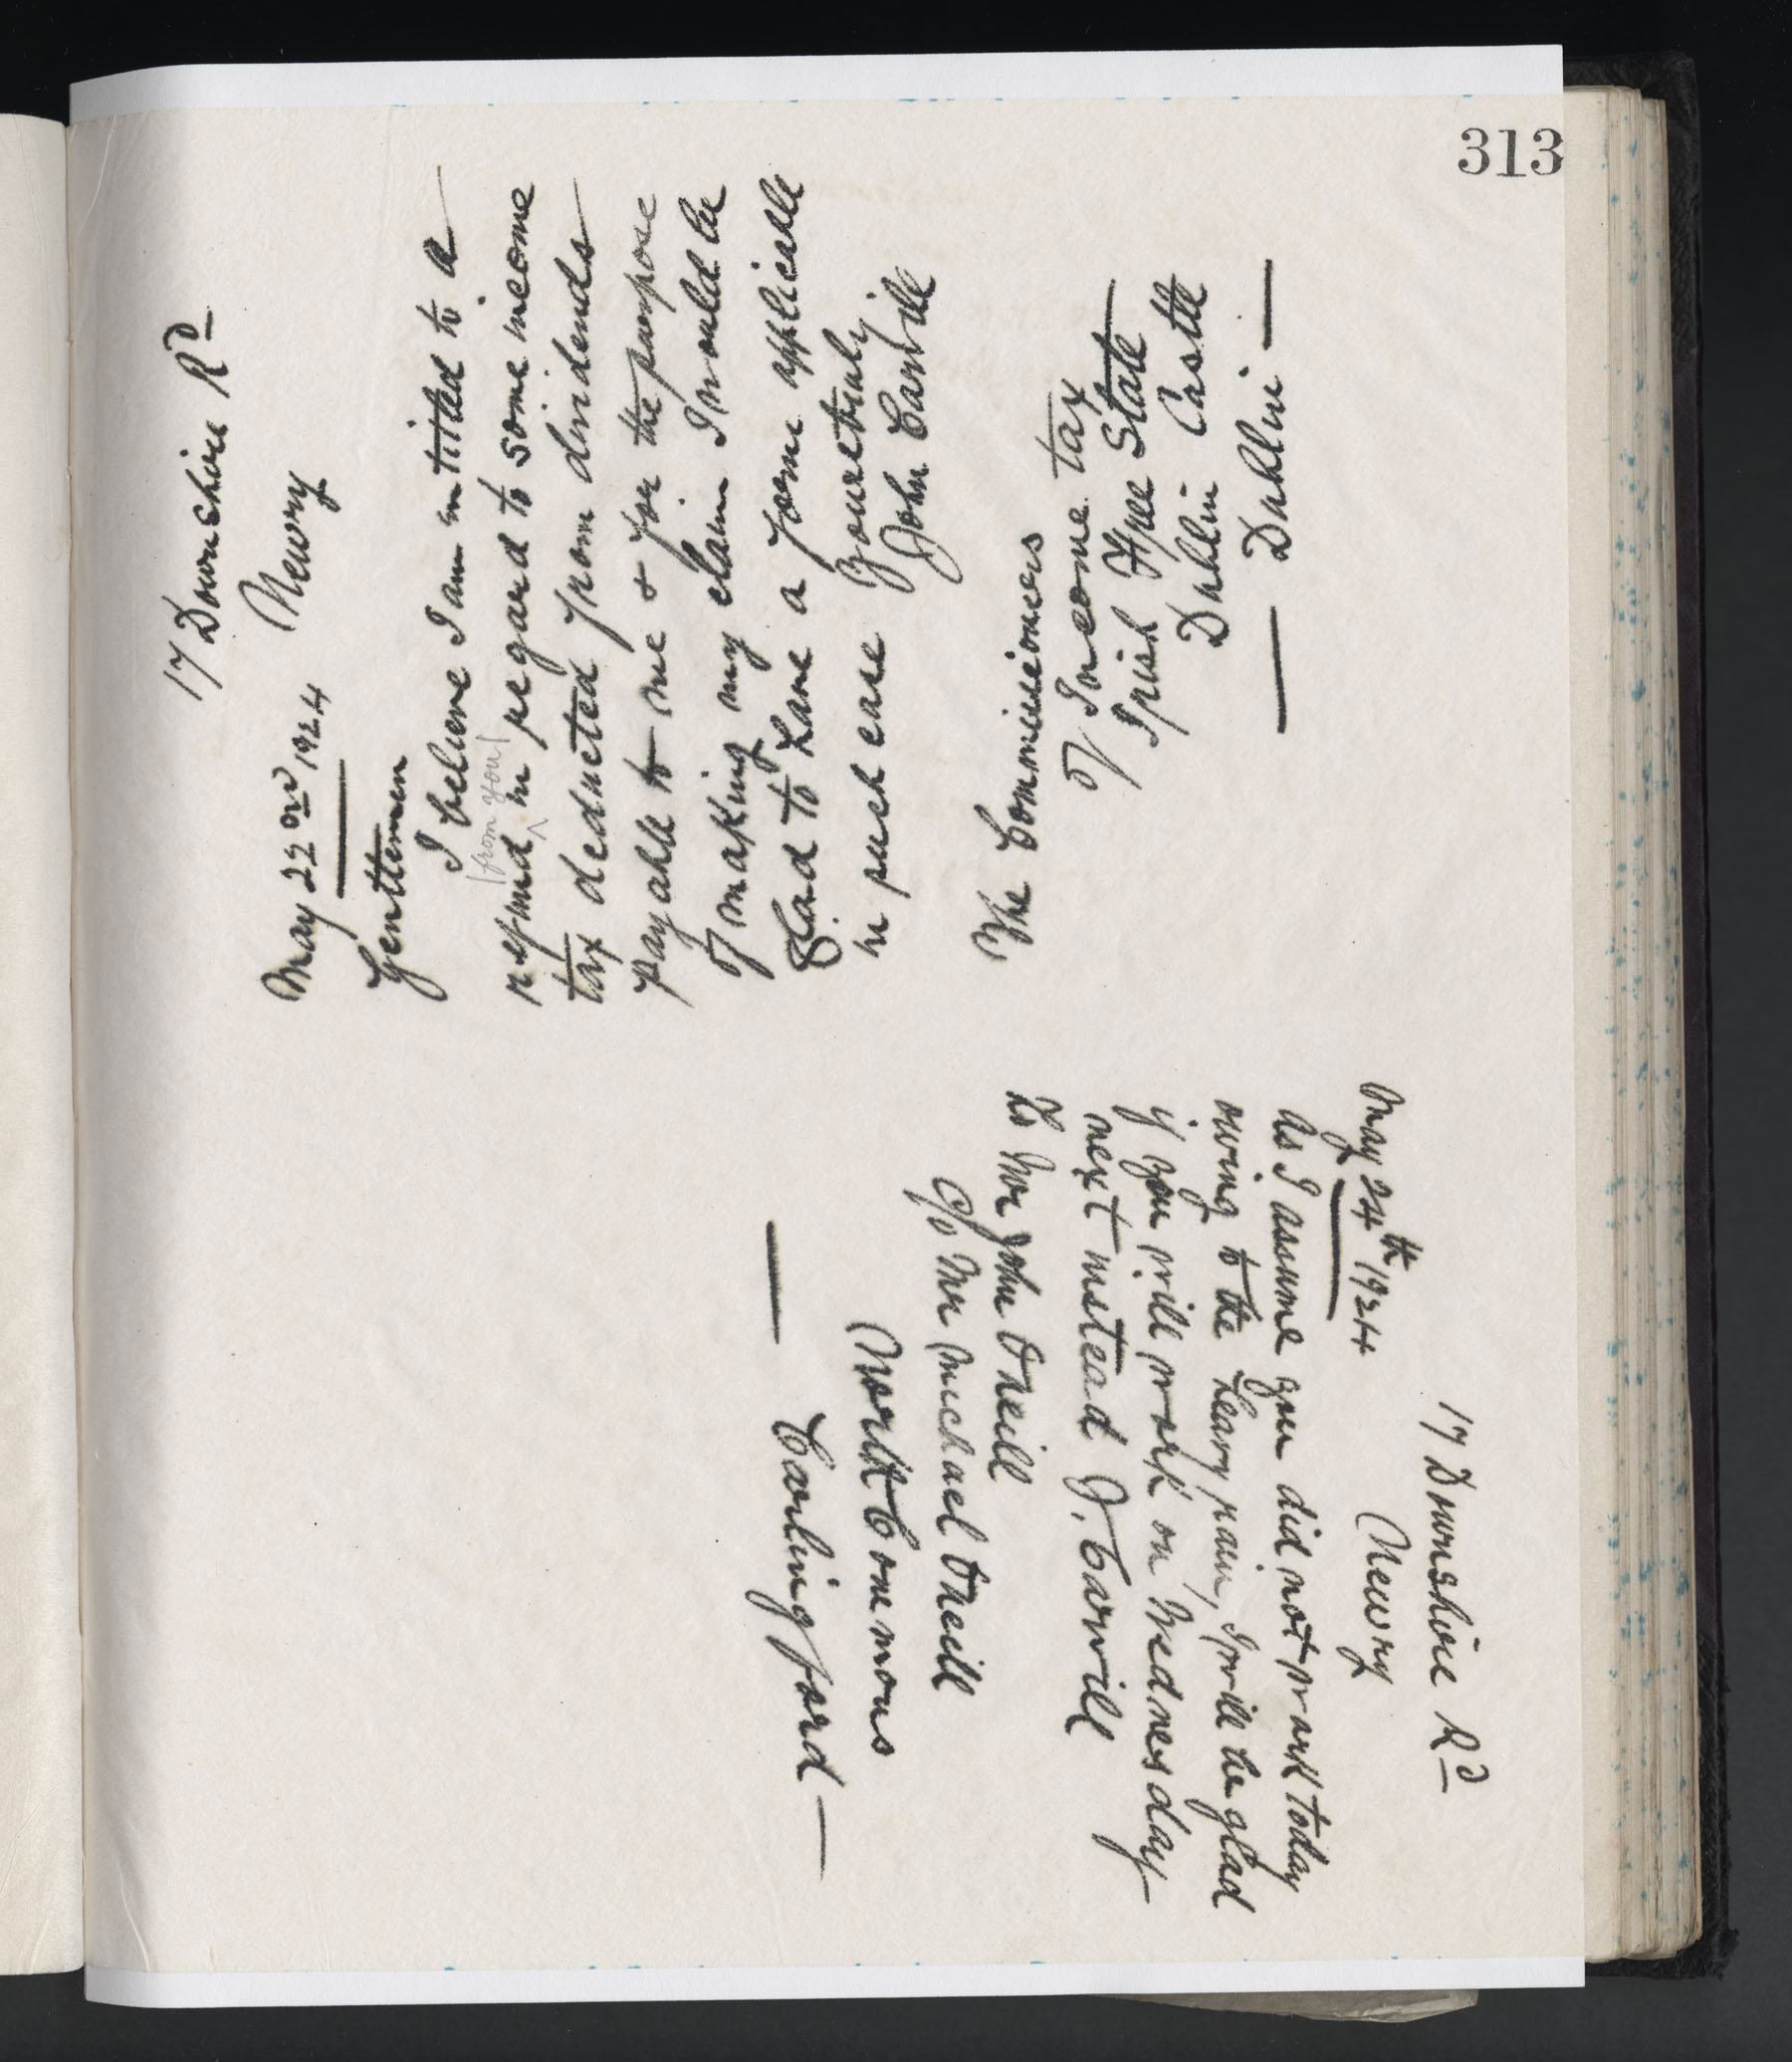 313
17 Downshire Rd
Newry
May 22nd 1924
Gentlemen
I believe I am entitled to a
from you
refund in regard to some income
tax deducted from dividends
payable to me & for the purpose
of making my claim I would be
glad to have a form applicable
in such case Yours truly
John Carvill
The Commissioners
of Income tax
Irish Free State
Dublin Castle
Dublin
17 Downshire Rd
Newry
May 24th 1924
As I assume you did not work today
owing to the heavy rain, I will be glad
if you will work on Wednesday
next instead J. Carvill
To Mr John O'Neill
c/o Mr Michael O'Neill
North Commons
Carlingford